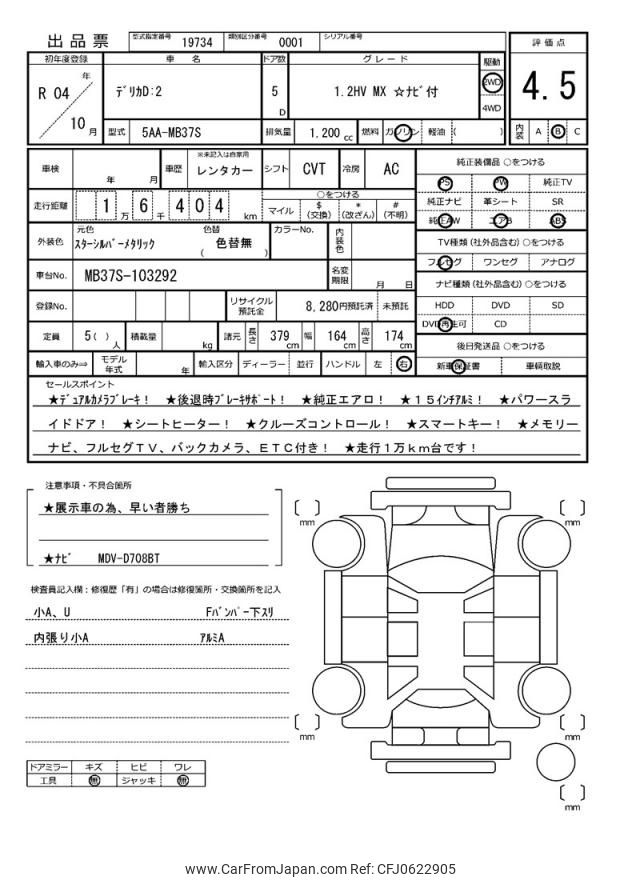 出品票 型式指定番号 19734 類別区分番号 0001 シリアル番号
初年度登録 車名 ドア数 グレード 駆動 評価点
R 04 年 10 月 ﾃﾞﾘｶD:2 5 D 1.2HV MX ☆ﾅﾋﾞ付 2WD 4WD 4.5
型式 5AA-MB37S 排気量 1,200 cc 燃料 ガソリン 軽油 ( ) 内装 A B C
車検 年 月 車歴 ※未記入は自家用 レンタカー シフト CVT 冷房 AC 純正装備品 ○をつける
PS PW 純正TV
走行距離 1 万 6 千 4 0 4 km ○をつける 純正ナビ 革シート SR
マイル $ (交換) * (改ざん) # (不明) 純正AW エアB ABS
外装色 元色 ｽﾀｰｼﾙﾊﾞｰﾒﾀﾘｯｸ 色替 ( 色替無 ) カラーNo. 内装色 TV種類 (社外品含む) ○をつける
フルセグ ワンセグ アナログ
車台No. MB37S-103292 名変期限 月 日 ナビ種類 (社外品含む) ○をつける
登録No. リサイクル預託金 8,280円預託済 未預託 HDD DVD SD
DVD再生可 CD
定員 5 ( ) 人 積載量 kg 諸元 長さ 379 cm 幅 164 cm 高さ 174 cm 後日発送品 ○をつける
輸入車のみ⇒ モデル年式 年 輸入区分 ディーラー 並行 ハンドル 左 右 新車保証書 車輌取説
セールスポイント
★ﾃﾞｭｱﾙｶﾒﾗﾌﾞﾚｰｷ！ ★後退時ﾌﾞﾚｰｷｻﾎﾟｰﾄ！ ★純正エアロ！ ★１５ｲﾝﾁｱﾙﾐ！ ★パワースラ
イドドア！ ★シートヒーター！ ★クルーズコントロール！ ★スマートキー！ ★メモリー
ナビ、フルセグＴＶ、バックカメラ、ＥＴＣ付き！ ★走行１万ｋｍ台です！
注意事項・不具合箇所
★展示車の為、早い者勝ち
★ﾅﾋﾞ MDV-D708BT
検査員記入欄：修復歴「有」の場合は修復箇所・交換箇所を記入
小A、U Fﾊﾞﾝﾊﾟｰ下ｽﾘ
内張り小A ｱﾙﾐA
ドアミラー キズ ヒビ ワレ
工具 無 ジャッキ 無
mm
mm
mm
mm
mm
www.CarFromJapan.com Ref: CFJ0622905